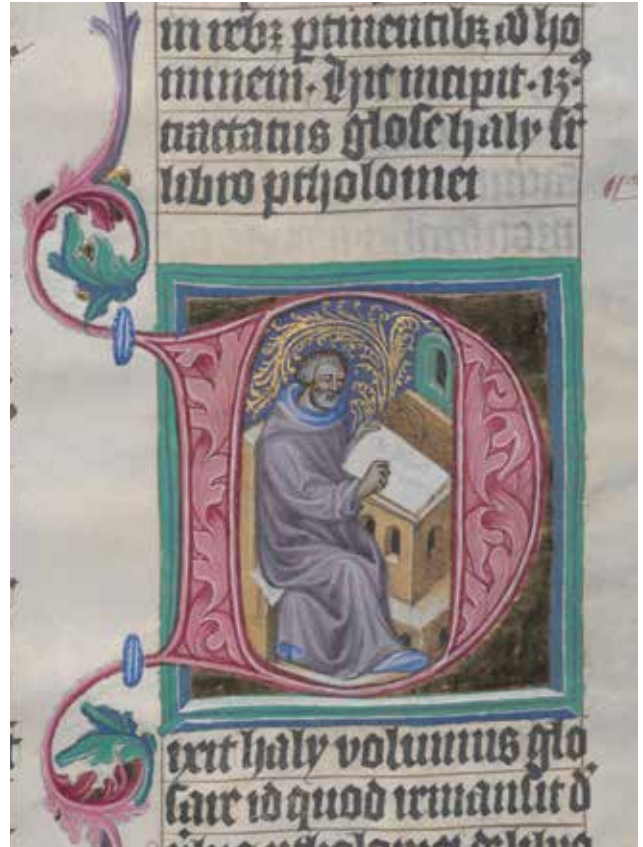 in rebꝫ ptinentibꝫ ad ho
minem. Hic incipit .12.
tractatus glose haly sr̄
libro ptholomei
Dixit haly volumus glo
sare id quod remansit d̕